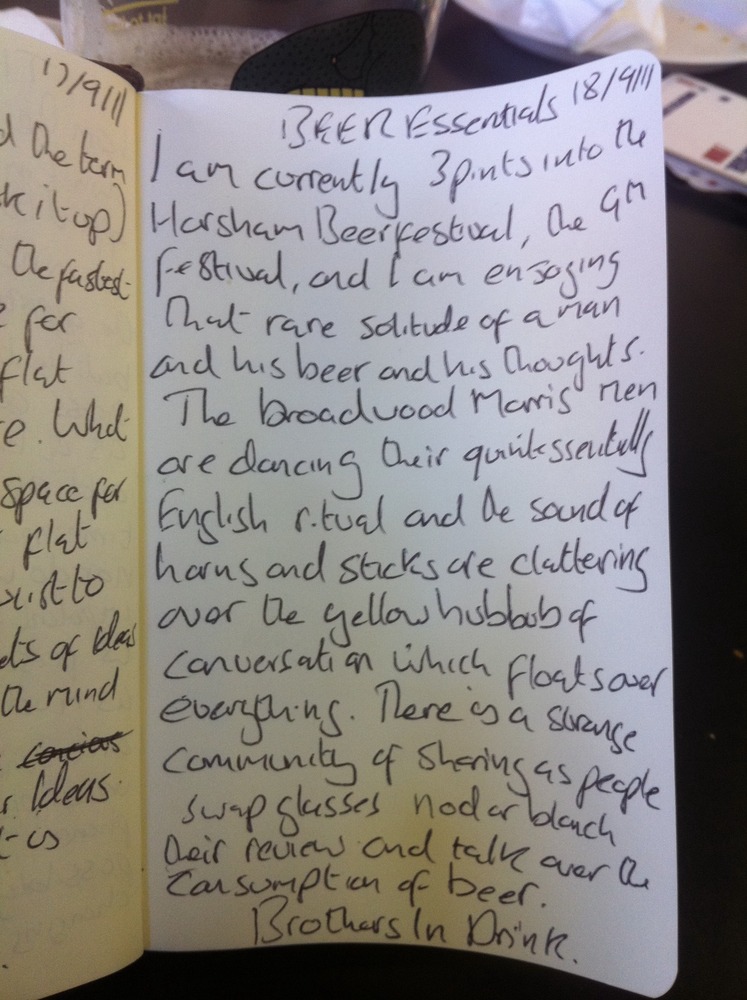 17/9/11
d the term
k it up)
the fastest
e for
flat
e. What
space for
flat
xist to
ets of Ideas
the mind
concious
r Ideas.
t us
BEER Essentials 18/9/11
I am currently 3 pints into the
Horsham Beer festival, the 9th
festival, and I am enjoying
that rare solitude of a man
and his beer and his thoughts.
The broadwood Morris Men
are dancing their quintessentially
English ritual and the sound of
horns and sticks are clattering
over the yellow hubbub of
conversation which floats over
everything. There is a strange
community of sharing as people
swap glasses nod or blanch
their review and talk over the
consumption of beer.
Brothers In Drink.